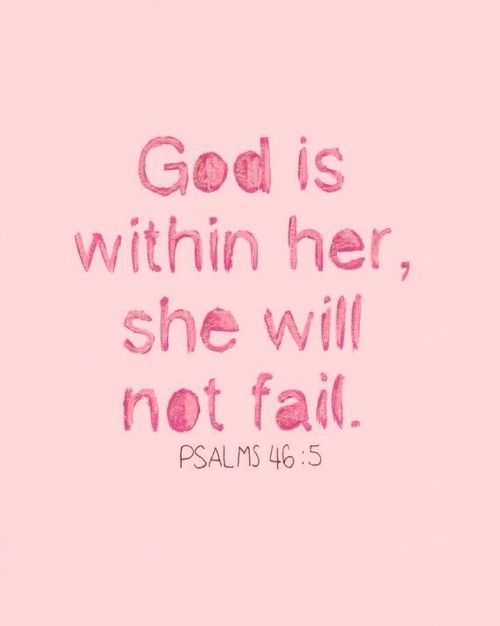 God is
within her,
she will
not fail.
PSALMS 46:5